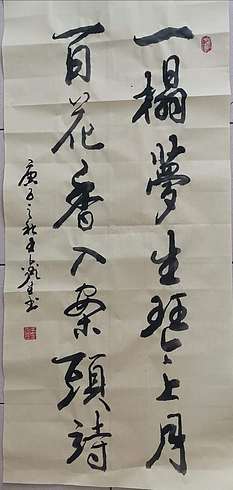 一榻夢生琴上月
百花香入案頭詩
庚子之秋
書